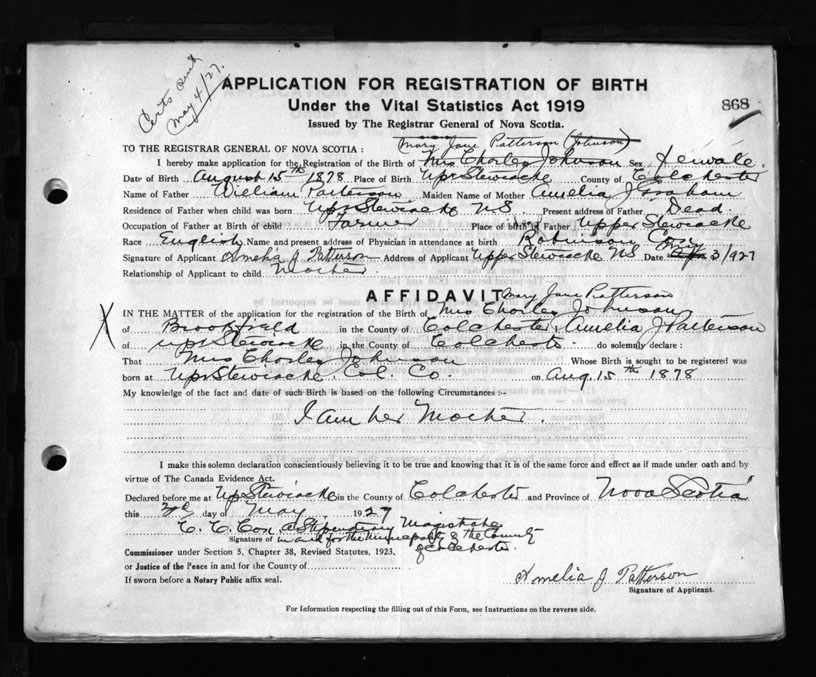 Certs sent
May 4/27.
APPLICATION FOR REGISTRATION OF BIRTH
Under the Vital Statistics Act 1919
868
Issued by The Registrar General of Nova Scotia.
Mary Jane Patterson (Johnson)
TO THE REGISTRAR GENERAL OF NOVA SCOTIA :
I hereby make application for the Registration of the Birth of Mrs Charley Johnson Sex Female
Date of Birth August 15th 1878 Place of Birth Upr Stewiacke County of Colchester
Name of Father William Patterson Maiden Name of Mother Amelia J Graham
Residence of Father when child was born Upr Stewiacke N.S. Present address of Father Dead
Occupation of Father at Birth of child Farmer Place of birth of Father Upper Stewiacke
Race English Name and present address of Physician in attendance at birth Robinson Cox
Signature of Applicant Amelia J Patterson Address of Applicant Upper Stewiacke NS Date 3/927
Relationship of Applicant to child Mother
AFFIDAVIT Mary Jane Patterson
IN THE MATTER of the application for the registration of the Birth of Mrs Charley Johnson
X of Brookfield in the County of Colchester, Amelia J Patterson
of Upr Stewiacke in the County of Colchester do solemnly declare :
That Mrs Charley Johnson Whose Birth is sought to be registered was
born at Upr Stewiacke. Col. Co. on Aug. 15th 1878
My knowledge of the fact and date of such Birth is based on the following Circumstances :-
I am her Mother.
I make this solemn declaration conscientiously believing it to be true and knowing that it is of the same force and effect as if made under oath and by
virtue of The Canada Evidence Act.
Declared before me at Upr Stewiacke in the County of Colchester and Province of Nova Scotia
this 3rd day of May 1927
C. C. Cox a Stipendiary Magistrate
Signature of in and for the Municipality of the County
of Colchester.
Commissioner under Section 5, Chapter 38, Revised Statutes, 1923.
or Justice of the Peace in and for the County of
If sworn before a Notary Public affix seal.
Amelia J. Patterson
Signature of Applicant.
For Information respecting the filling out of this Form, see Instructions on the reverse side.